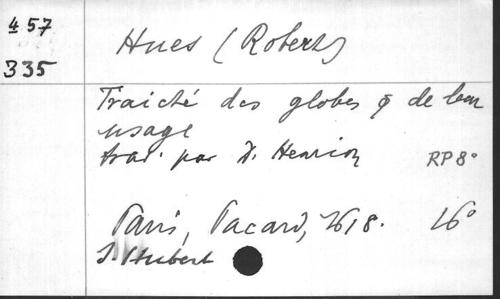 457
335
Hues (Robert)
Traicté des globes & de leur
usage
trad. par D. Henrion RP 8°
Paris, Pacard, 1618. 16°
S. Hubert